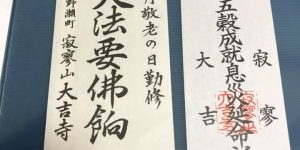 五穀成就息災延命
寂寥
大吉
月敬老の日勤修
大法要佛餉
野瀬町 寂寥山 大吉寺